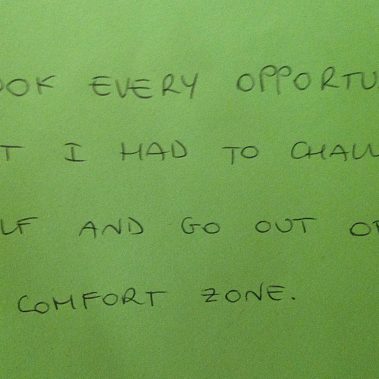 OOK EVERY OPPORTU
T I HAD TO CHALL
LF AND GO OUT OF
COMFORT ZONE.